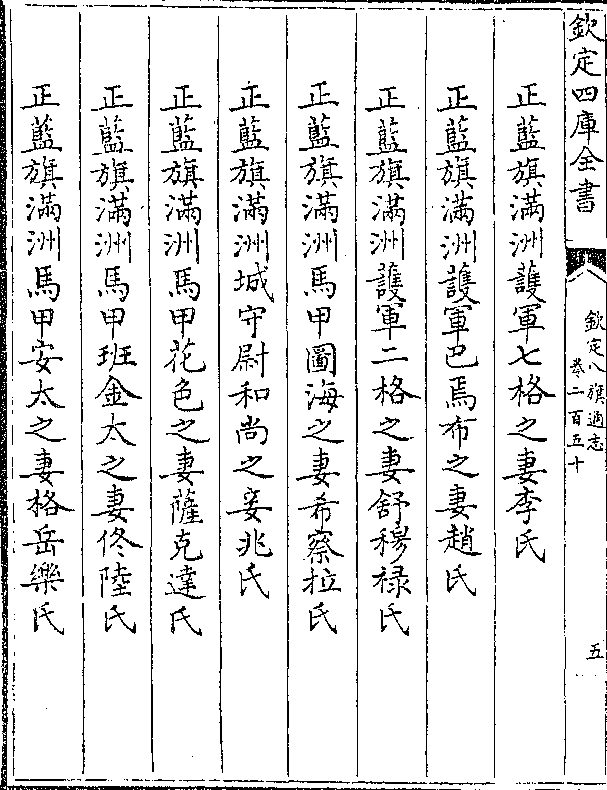 欽定四庫全書
欽定八旗通志
卷二百五十
五
正藍旗滿洲護軍七格之妻李氏
正藍旗滿洲護軍巴焉布之妻趙氏
正藍旗滿洲護軍二格之妻舒穆祿氏
正藍旗滿洲馬甲圖海之妻希察拉氏
正藍旗滿洲城守尉和尚之妾兆氏
正藍旗滿洲馬甲花色之妻薩克達氏
正藍旗滿洲馬甲班金太之妻佟陸氏
正藍旗滿洲馬甲安太之妻格岳樂氏